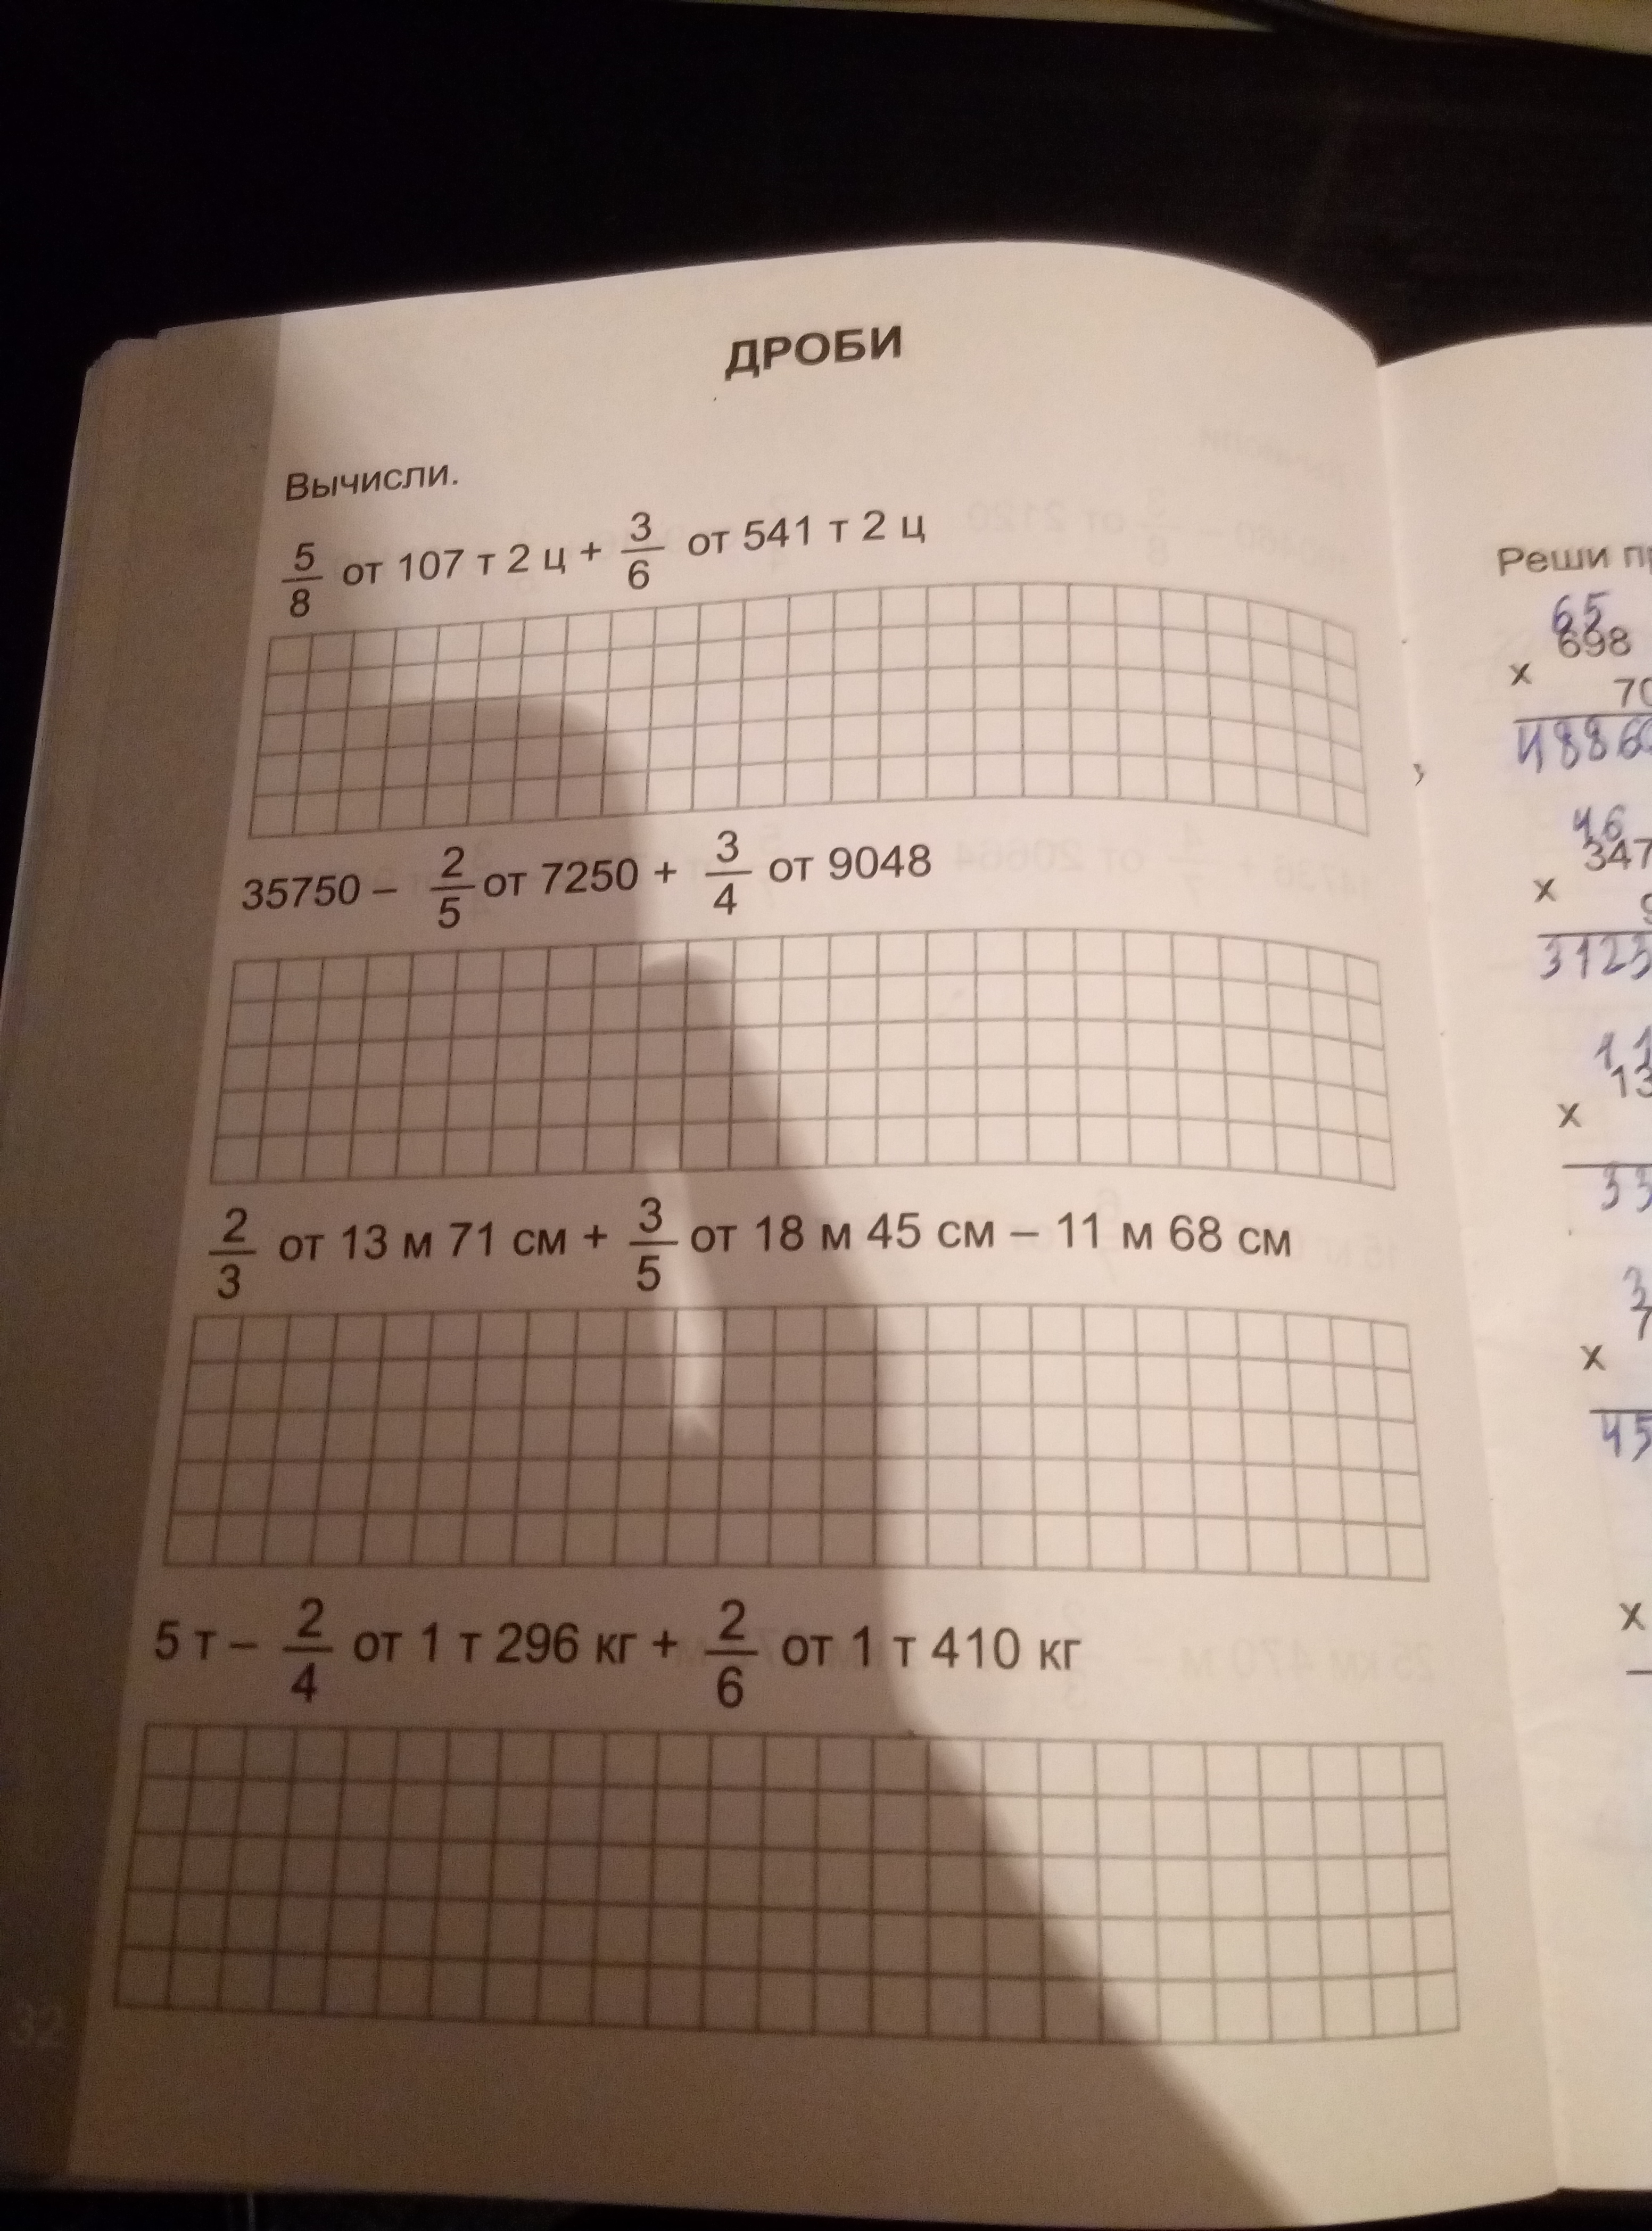 ДРОБИ
Вычисли.
5/8 от 107 т 2 ц + 3/6 от 541 т 2 ц
35750 – 2/5 от 7250 + 3/4 от 9048
2/3 от 13 м 71 см + 3/5 от 18 м 45 см – 11 м 68 см
5 т – 2/4 от 1 т 296 кг + 2/6 от 1 т 410 кг
32
Реши
65
698
x
70
4886
46
347
x
3125
11
13
x
33
3
7
x
45
x